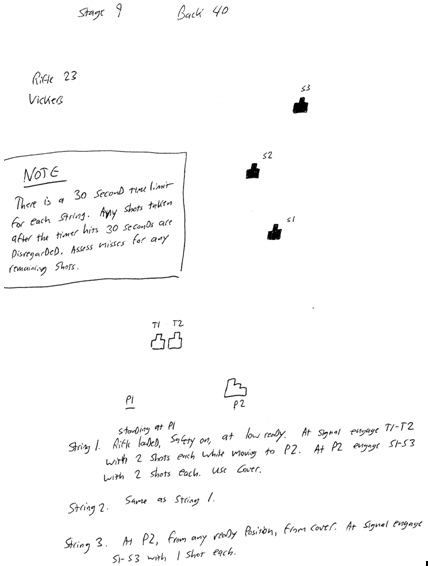 Stage 9 Back 40
Rifle 23
Vickers
S3
S2
S1
NOTE
There is a 30 second time limit
for each string. Any shots taken
after the timer hits 30 seconds are
Disregarded. Assess misses for any
remaining shots.
T1 T2
P1
P2
standing at P1
String 1. Rifle loaded, Safety on, at low ready. At signal engage T1-T2
with 2 shots each while moving to P2. At P2 engage S1-S3
with 2 shots each. Use Cover.
String 2. Same as String 1.
String 3. At P2, from any ready Position, from cover. At signal engage
S1-S3 with 1 shot each.